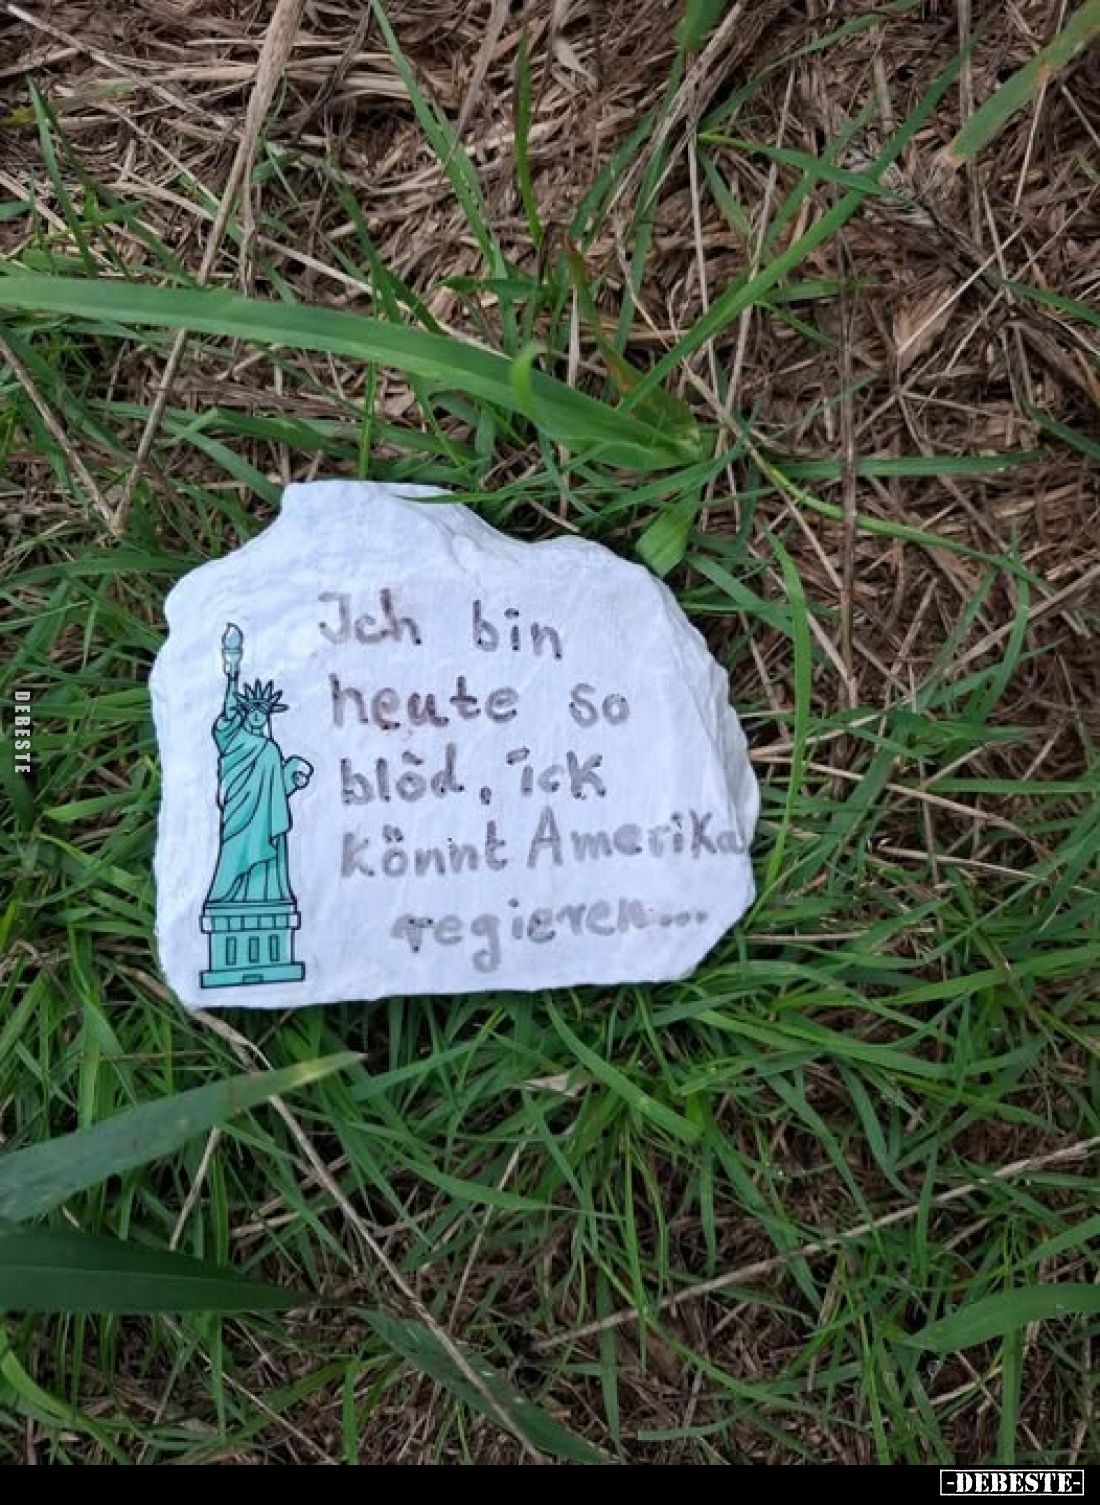 Ich bin
heute so
blöd, ick
könnt Amerika
regieren...
DEBESTE
-DEBESTE-